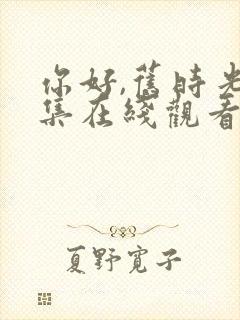 你好,舊時光
集在綫觀看
夏野寬子